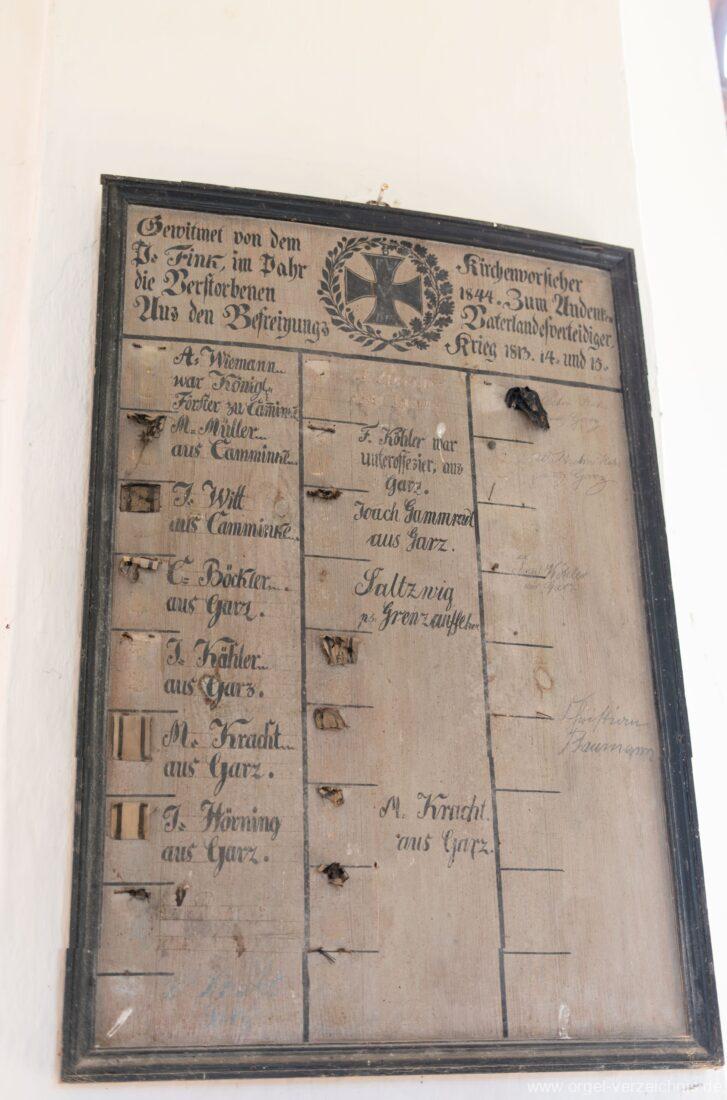 Gewitmet von dem Kirchenvorsteher
J. Fink, im Jahr 1844. Zum Andenk.
die Verstorbenen Vaterlandesverteidiger.
Aus den Befreiyungs Krieg 1813. 14. und 15.
A. Wiemann
war Königl.
Förster zu Camminke
M. Müller
aus Camminke
J. Witt
aus Camminke
C. Böckler
aus Garz.
J. Kähler
aus Garz.
M. Kracht
aus Garz.
J. Hörning
aus Garz.
F. Köhler war
unteroffezier, aus
Garz.
Joach Gammradt
aus Garz.
Saltzwig
M. Kracht.
aus Garz.
Köhler
aus Garz
Christian
Baumann
www.orgel-verzeichnis.de